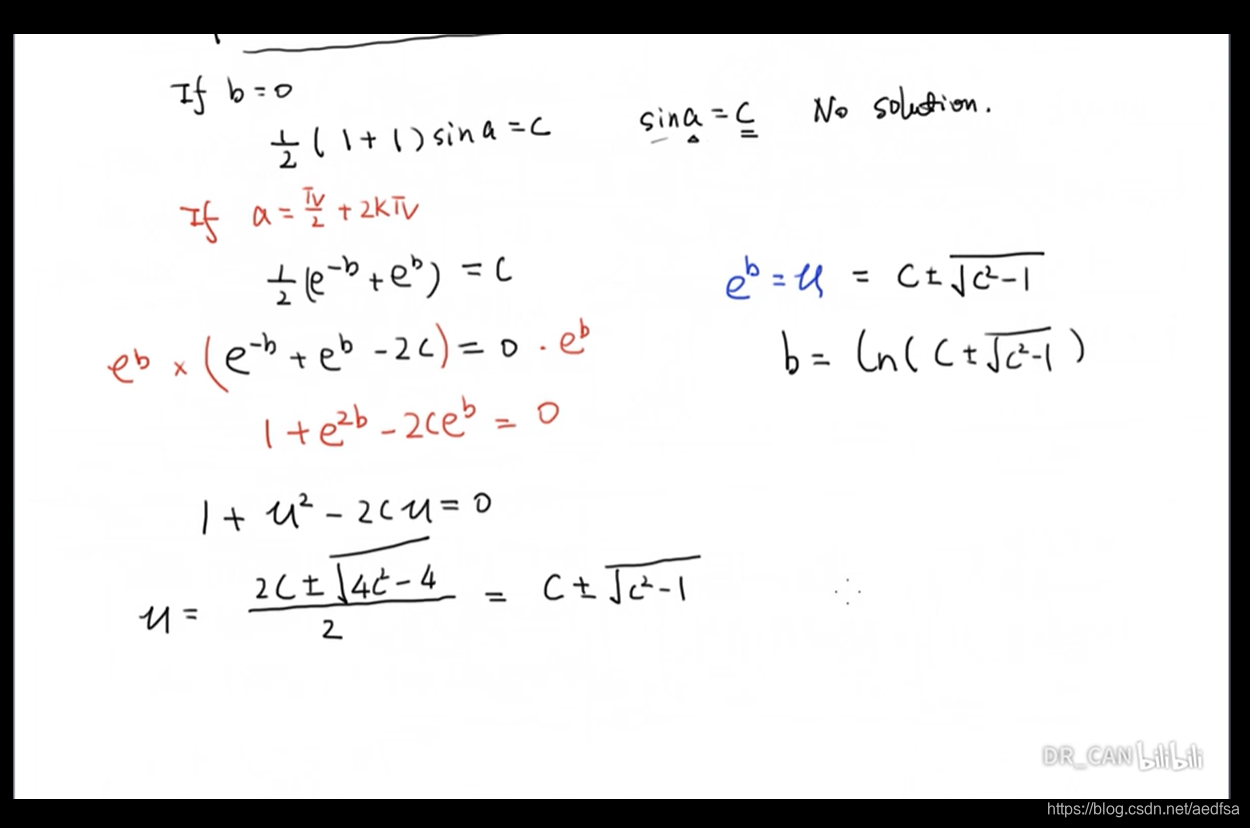 If b=0
½(1+1)sin a=C    sin a=C    No solution.
If a=π/2+2kπ
½(e^{-b}+e^{b})=C    e^{b}=u=C±√(C²-1)
e^{b}×(e^{-b}+e^{b}-2C)=0·e^{b}    b=ln(C±√(C²-1))
1+e^{2b}-2Ce^{b}=0
1+u²-2Cu=0
u=(2C±√(4C²-4))/2=C±√(C²-1)
DR_CAN bilibili
https://blog.csdn.net/aedfsa